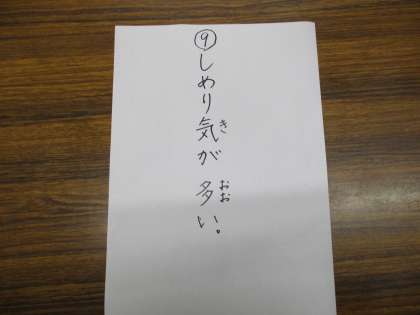 ⑨しめり気が多い。
きおお